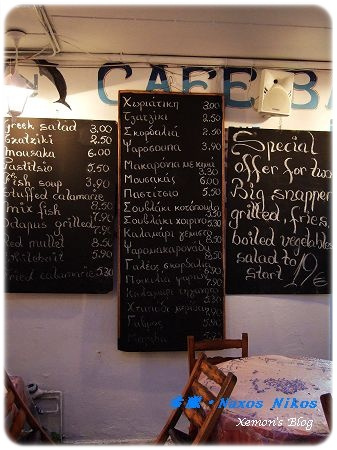 CAFE BA
Greek salad 3.00
Tzatziki 2.50
Mousaka 6.00
Pastitsio 5.50
Fish soup 3.90
Stuffed calamarie
mix fish 8.50
Octapus grilled 7.90
Red mullet 8.50
Whitebait 5.90
Fried calamaries 5.30
Χωριάτικη 3.00
Τζατζίκι 2.50
Σκορδαλιά 2.50
Ψαρόσουπα 3.90
Μακαρόνια με κιμά
Μουσακάς 6.00
Παστίτσιο 5.50
Σουβλάκι κοτόπουλο
Σουβλάκι χοιρινό
Καλαμάρι γεμιστό
Ψαρομακαρονάδα
Γαλέος σκορδαλιά
Ποικιλία ψαριών
Γαύρος
Special
offer for two
Big snapper
grilled, fries,
boiled vegetables
salad to
start 19€
Naxos Nikos
Xemon's Blog